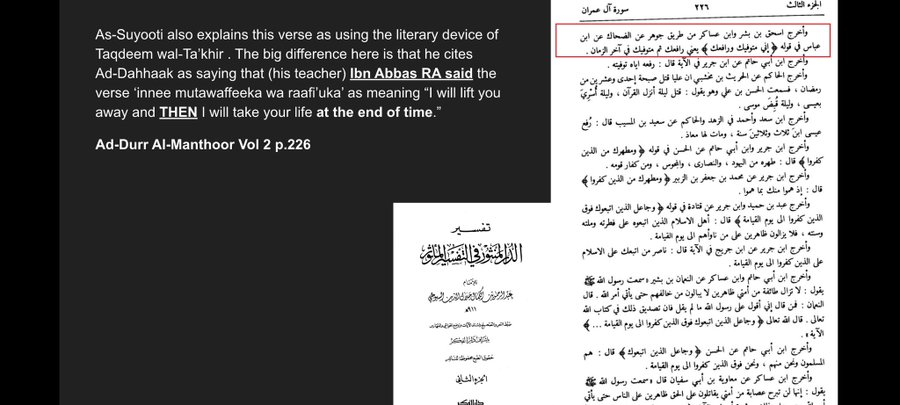 As-Suyooti also explains this verse as using the literary device of
Taqdeem wal-Ta’khir . The big difference here is that he cites
Ad-Dahhaak as saying that (his teacher) Ibn Abbas RA said the
verse ‘innee mutawaffeeka wa raafi’uka’ as meaning “I will lift you
away and THEN I will take your life at the end of time.”
Ad-Durr Al-Manthoor Vol 2 p.226
الجزء الثالث
٢٢٦
سورة آل عمران
وأخرج اسحق بن بشر وابن عساكر من طريق جوهر عن الضحاك عن ابن
عباس في قوله ﴿ إني متوفيك ورافعك ﴾ يعني رافعك ثم متوفيك في آخر الزمان .
وأخرج ابن أبي حاتم عن ابن جرير في الآية قال : رفعه اياه توفيته .
وأخرج الحاكم عن الحريث بن مخشبي ان عليا قتل صبيحة إحدى وعشرين من
رمضان ، فسمعت الحسن بن علي وهو يقول : قتل ليلة أنزل القرآن ، وليلة أسري
بعيسى ، وليلة قبض موسى .
وأخرج ابن سعد وأحمد في الزهد والحاكم عن سعيد بن المسيب قال : رُفِع
عيسى ابن ثلاث وثلاثين سنة ، ومات لها معاذ .
وأخرج ابن جرير وابن أبي حاتم عن الحسن في قوله ﴿ ومطهرك من الذين
كفروا ﴾ قال : طهره من اليهود ، والنصارى ، والمجوس ، ومن كفار قومه .
وأخرج ابن جرير عن محمد بن جعفر بن الزبير ﴿ ومطهرك من الذين كفروا ﴾
قال : إذ هموا منك بما هموا .
وأخرج عبد بن حميد وابن جرير عن قتادة في قوله ﴿ وجاعل الذين اتبعوك فوق
الذين كفروا الى يوم القيامة ﴾ قال : أهل الاسلام الذين اتبعوه على فطرته وملته
وسنته ، فلا يزالون ظاهرين على من ناوأهم الى يوم القيامة .
وأخرج ابن جرير عن ابن جريج في الآية قال : ناصر من اتبعك على الاسلام
على الذين كفروا الى يوم القيامة .
وأخرج ابن أبي حاتم وابن عساكر عن النعمان بن بشير « سمعت رسول الله ﷺ
يقول : لا تزال طائفة من أمتي ظاهرين لا يبالون من خالفهم حتى يأتي أمر الله . قال
النعمان : فمن قال إني أقول على رسول الله ما لم يقل فان تصديق ذلك في كتاب الله
تعالى . قال الله تعالى ﴿ وجاعل الذين اتبعوك فوق الذين كفروا الى يوم القيامة ... ﴾
الآية » .
وأخرج ابن أبي حاتم عن الحسن ﴿ وجاعل الذين اتبعوك ﴾ قال : هم
المسلمون ونحن منهم ، ونحن فوق الذين كفروا الى يوم القيامة .
وأخرج ابن عساكر عن معاوية بن أبي سفيان قال « سمعت رسول الله ﷺ
يقول : إنها لن تبرح عصابة من أمتي يقاتلون على الحق ظاهرين على الناس حتى يأتي
تفسير
الدر المنثور في التفسير المأثور
٩١١هـ
الجزء الثاني
دار الفكر